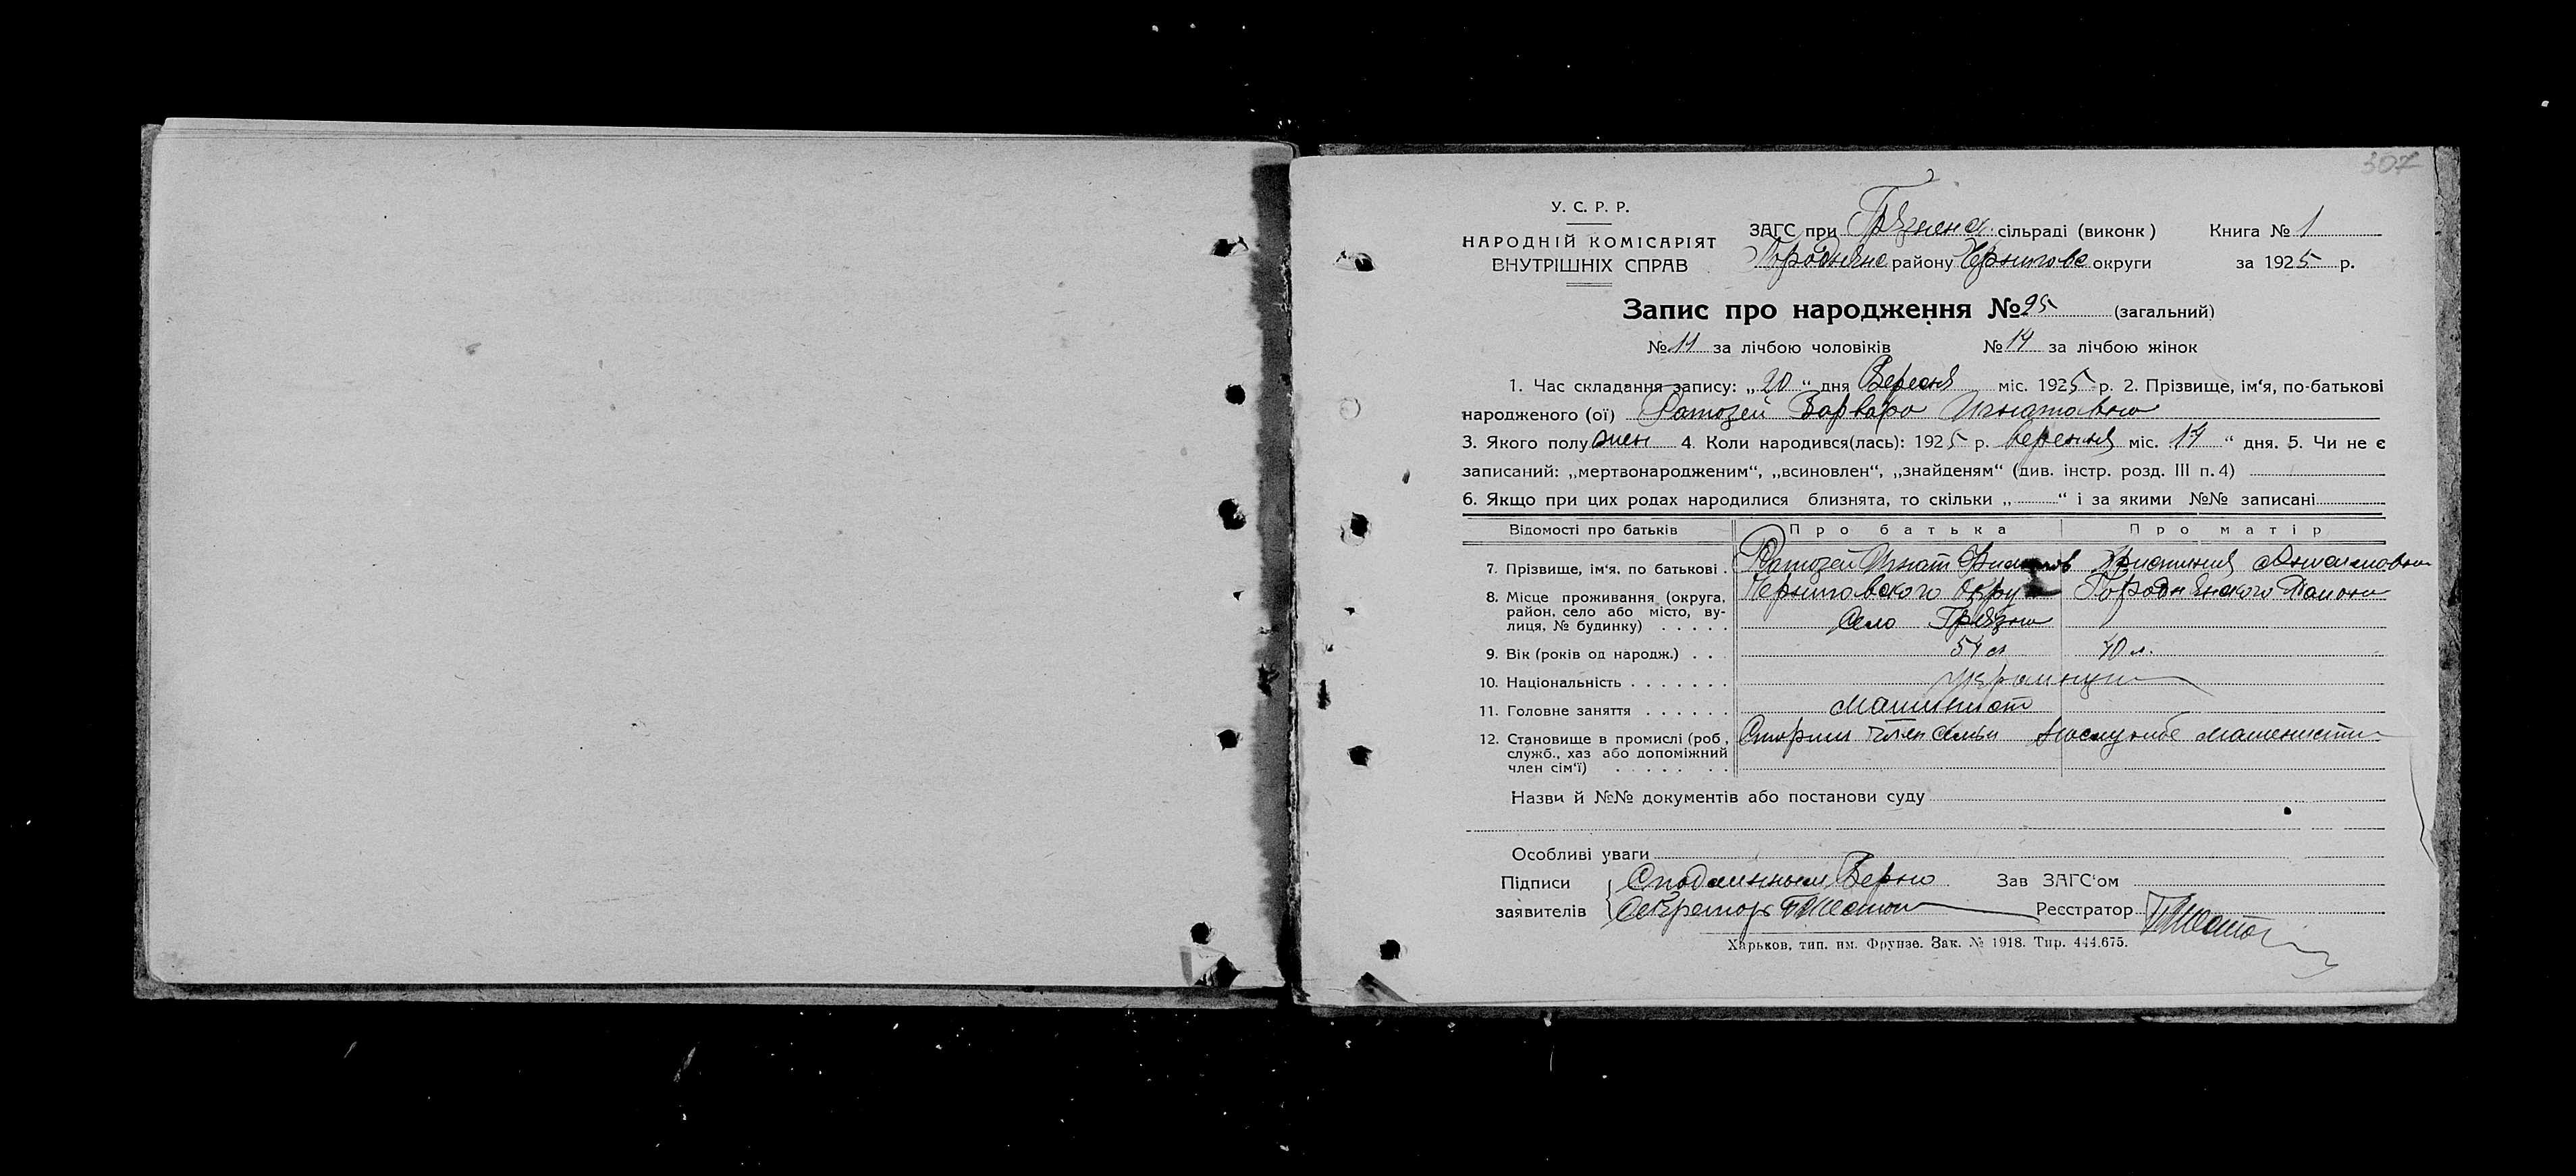 307
У. С. Р. Р.
НАРОДНІЙ КОМІСАРІЯТ
ВНУТРІШНІХ СПРАВ
ЗАГС при Грязненск сільраді (виконк) Книга № 1
Городнянс району Чернигово округи за 1925 р.
Запис про народження № 25 (загальний)
№ 11 за лічбою чоловіків № 14 за лічбою жінок
1. Час складання запису: „20“ дня Вересня міс. 1925 р. 2. Прізвище, ім‘я, по-батькові
народженого (ої) Ратозей Варвара Игнатовна
3. Якого полу жен 4. Коли народився(лась): 1925 р. вересня міс. 14 “ дня. 5. Чи не є
записаний: „мертвонародженим“, „всиновлен“, „знайденям“ (див. інстр. розд. III п. 4)
6. Якщо при цих родах народилися близнята, то скільки „ “ і за якими №№ записані
Відомості про батьків Про батька Про матір
7. Прізвище, ім‘я, по батькові . Ратозей Игнат
8. Місце проживання (округа, Черниговского Округа Городнянского Района
район, село або місто, ву-
лиця, № будинку) . . . . . Село Грязна
9. Вік (років од народж.) . . 54 л 40 л.
10. Національність . . . . . . . украинцы
11. Головне заняття . . . . . . машинист
12. Становище в промислі (роб., Старший член семьи
служб., хаз або допоміжний
член сім‘ї) . . . . . . .
Назви й №№ документів або постанови суду
Особливі уваги
Підписи С подлинным Верно Зав ЗАГС‘ом
заявителів Секретарь Реєстратор
Харьков, тип. им. Фрунзе. Зак. № 1918. Тир. 444.675.